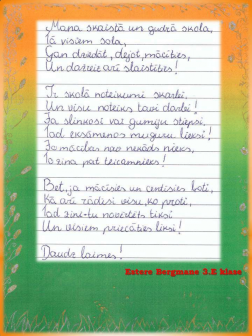 Mana skaistā un gudrā skola,
Tā visiem sola,
Gan dziedāt, dejot, mācīties,
Un dažreiz arī slaistīties!
Ir skolā noteikumi skarbi,
Un visu noteiks tavi darbi!
Ja slinkosi vai gumiju stiepsi,
Tad eksāmenos muguru lieksi!
Jo mācības nav nekāds nieks,
To zina pat teicamnieks!
Bet, ja mācīsies un centīsies ļoti,
Kā arī rādīsi visu, ko proti,
Tad zini-tu novērtēts tiksi
Un visiem priecāties liksi!
Daudz laimes!
Estere Bergmane 3.E klase